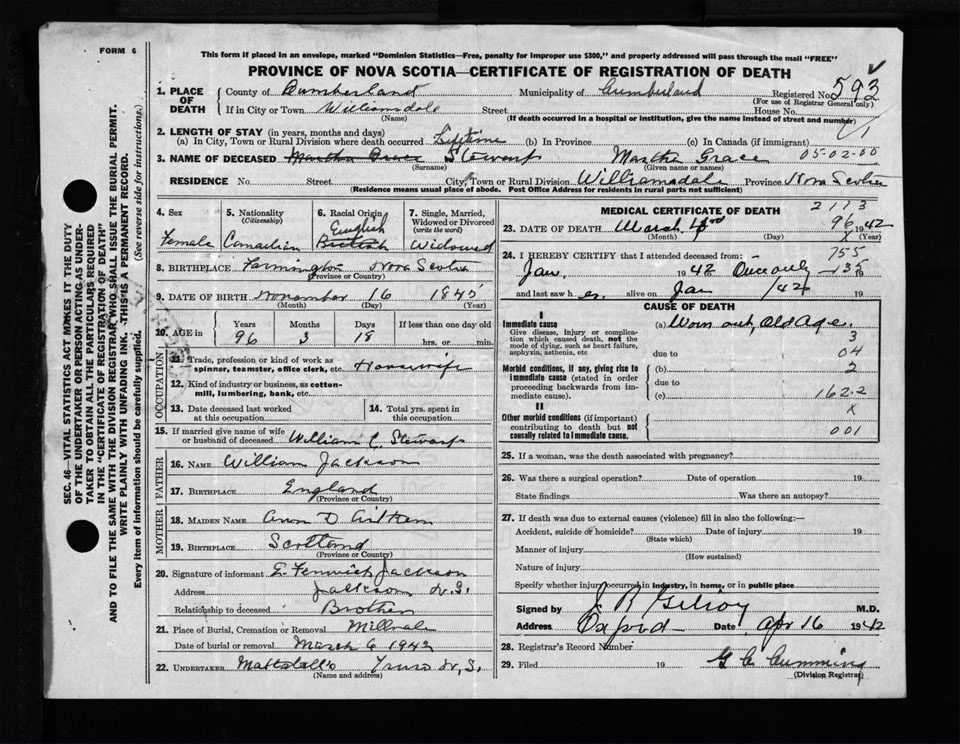 FORM 6
This form if placed in an envelope, marked "Dominion Statistics—Free, penalty for improper use $300," and properly addressed will pass through the mail "FREE"
PROVINCE OF NOVA SCOTIA—CERTIFICATE OF REGISTRATION OF DEATH
SEC. 46—VITAL STATISTICS ACT MAKES IT THE DUTY
OF THE UNDERTAKER OR PERSON ACTING AS UNDER-
TAKER TO OBTAIN ALL THE PARTICULARS REQUIRED
IN THE "CERTIFICATE OF REGISTRATION OF DEATH"
AND TO FILE THE SAME WITH THE DIVISION REGISTRAR WHO SHALL ISSUE THE BURIAL PERMIT.
WRITE PLAINLY WITH UNFADING INK. THIS IS A PERMANENT RECORD.
Every item of information should be carefully supplied. (See reverse side for instructions.)
1. PLACE OF DEATH County of Cumberland Municipality of Cumberland Registered No. 593
(For use of Registrar General only)
If in City or Town Williamsdale Street House No.
(Name) (If death occurred in a hospital or institution, give the name instead of street and number)
2. LENGTH OF STAY (in years, months and days)
(a) In City, Town or Rural Division where death occurred Lifetime (b) In Province (c) In Canada (if immigrant)
3. NAME OF DECEASED Martha Grace Stewart Martha Grace 05-02-00
(Surname) (Given name or names)
RESIDENCE No. Street City, Town or Rural Division Williamsdale Province Nova Scotia
(Residence means usual place of abode. Post Office Address for residents in rural parts not sufficient)
4. Sex 5. Nationality (Citizenship) 6. Racial Origin 7. Single, Married, Widowed or Divorced (write the word)
Female Canadian English British Widowed
8. BIRTHPLACE Farmington Nova Scotia
(Province or Country)
9. DATE OF BIRTH November 16 1845
(Month) (Day) (Year)
10. AGE in Years Months Days If less than one day old
96 3 18 hrs. or min.
OCCUPATION
11. Trade, profession or kind of work as spinner, teamster, office clerk, etc. Housewife
12. Kind of industry or business, as cotton-mill, lumbering, bank, etc.
13. Date deceased last worked at this occupation 14. Total yrs. spent in this occupation
15. If married give name of wife or husband of deceased William C Stewart
FATHER
16. NAME William Jackson
17. BIRTHPLACE England
(Province or Country)
MOTHER
18. MAIDEN NAME Ann D Aitken
19. BIRTHPLACE Scotland
(Province or Country)
20. Signature of informant E. Fenwick Jackson
Address Jackson N.S.
Relationship to deceased Brother
21. Place of Burial, Cremation or Removal Millvale
Date of burial or removal March 6 1942
22. UNDERTAKER Mattatall's Truro N.S.
(Name and address)
MEDICAL CERTIFICATE OF DEATH 2113
23. DATE OF DEATH March 96 1942
(Month) (Day) (Year)
24. I HEREBY CERTIFY that I attended deceased from: 755
Jan. 1942 Once only 135 19
and last saw her alive on Jan 1942 19
CAUSE OF DEATH
I
Immediate cause (a) Worn out, Old Age.
Give disease, injury or complication which caused death, not the mode of dying, such as heart failure, asphyxia, asthenia, etc
3
due to 04
Morbid conditions, if any, giving rise to immediate cause (stated in order proceeding backwards from immediate cause).
(b) 2
due to
(c) 162-2
II
X
Other morbid conditions (if important) contributing to death but not causally related to immediate cause.
001
25. If a woman, was the death associated with pregnancy?
26. Was there a surgical operation? Date of operation 19
State findings Was there an autopsy?
27. If death was due to external causes (violence) fill in also the following:—
Accident, suicide or homicide? Date of injury 19
(State which)
Manner of injury
(How sustained)
Nature of injury
Specify whether injury occurred in industry, in home, or in public place
Signed by J R Gilroy M.D.
Address Oxford Date Apr 16 1942
28. Registrar's Record Number
29. Filed 19 G C Cumming
(Division Registrar)